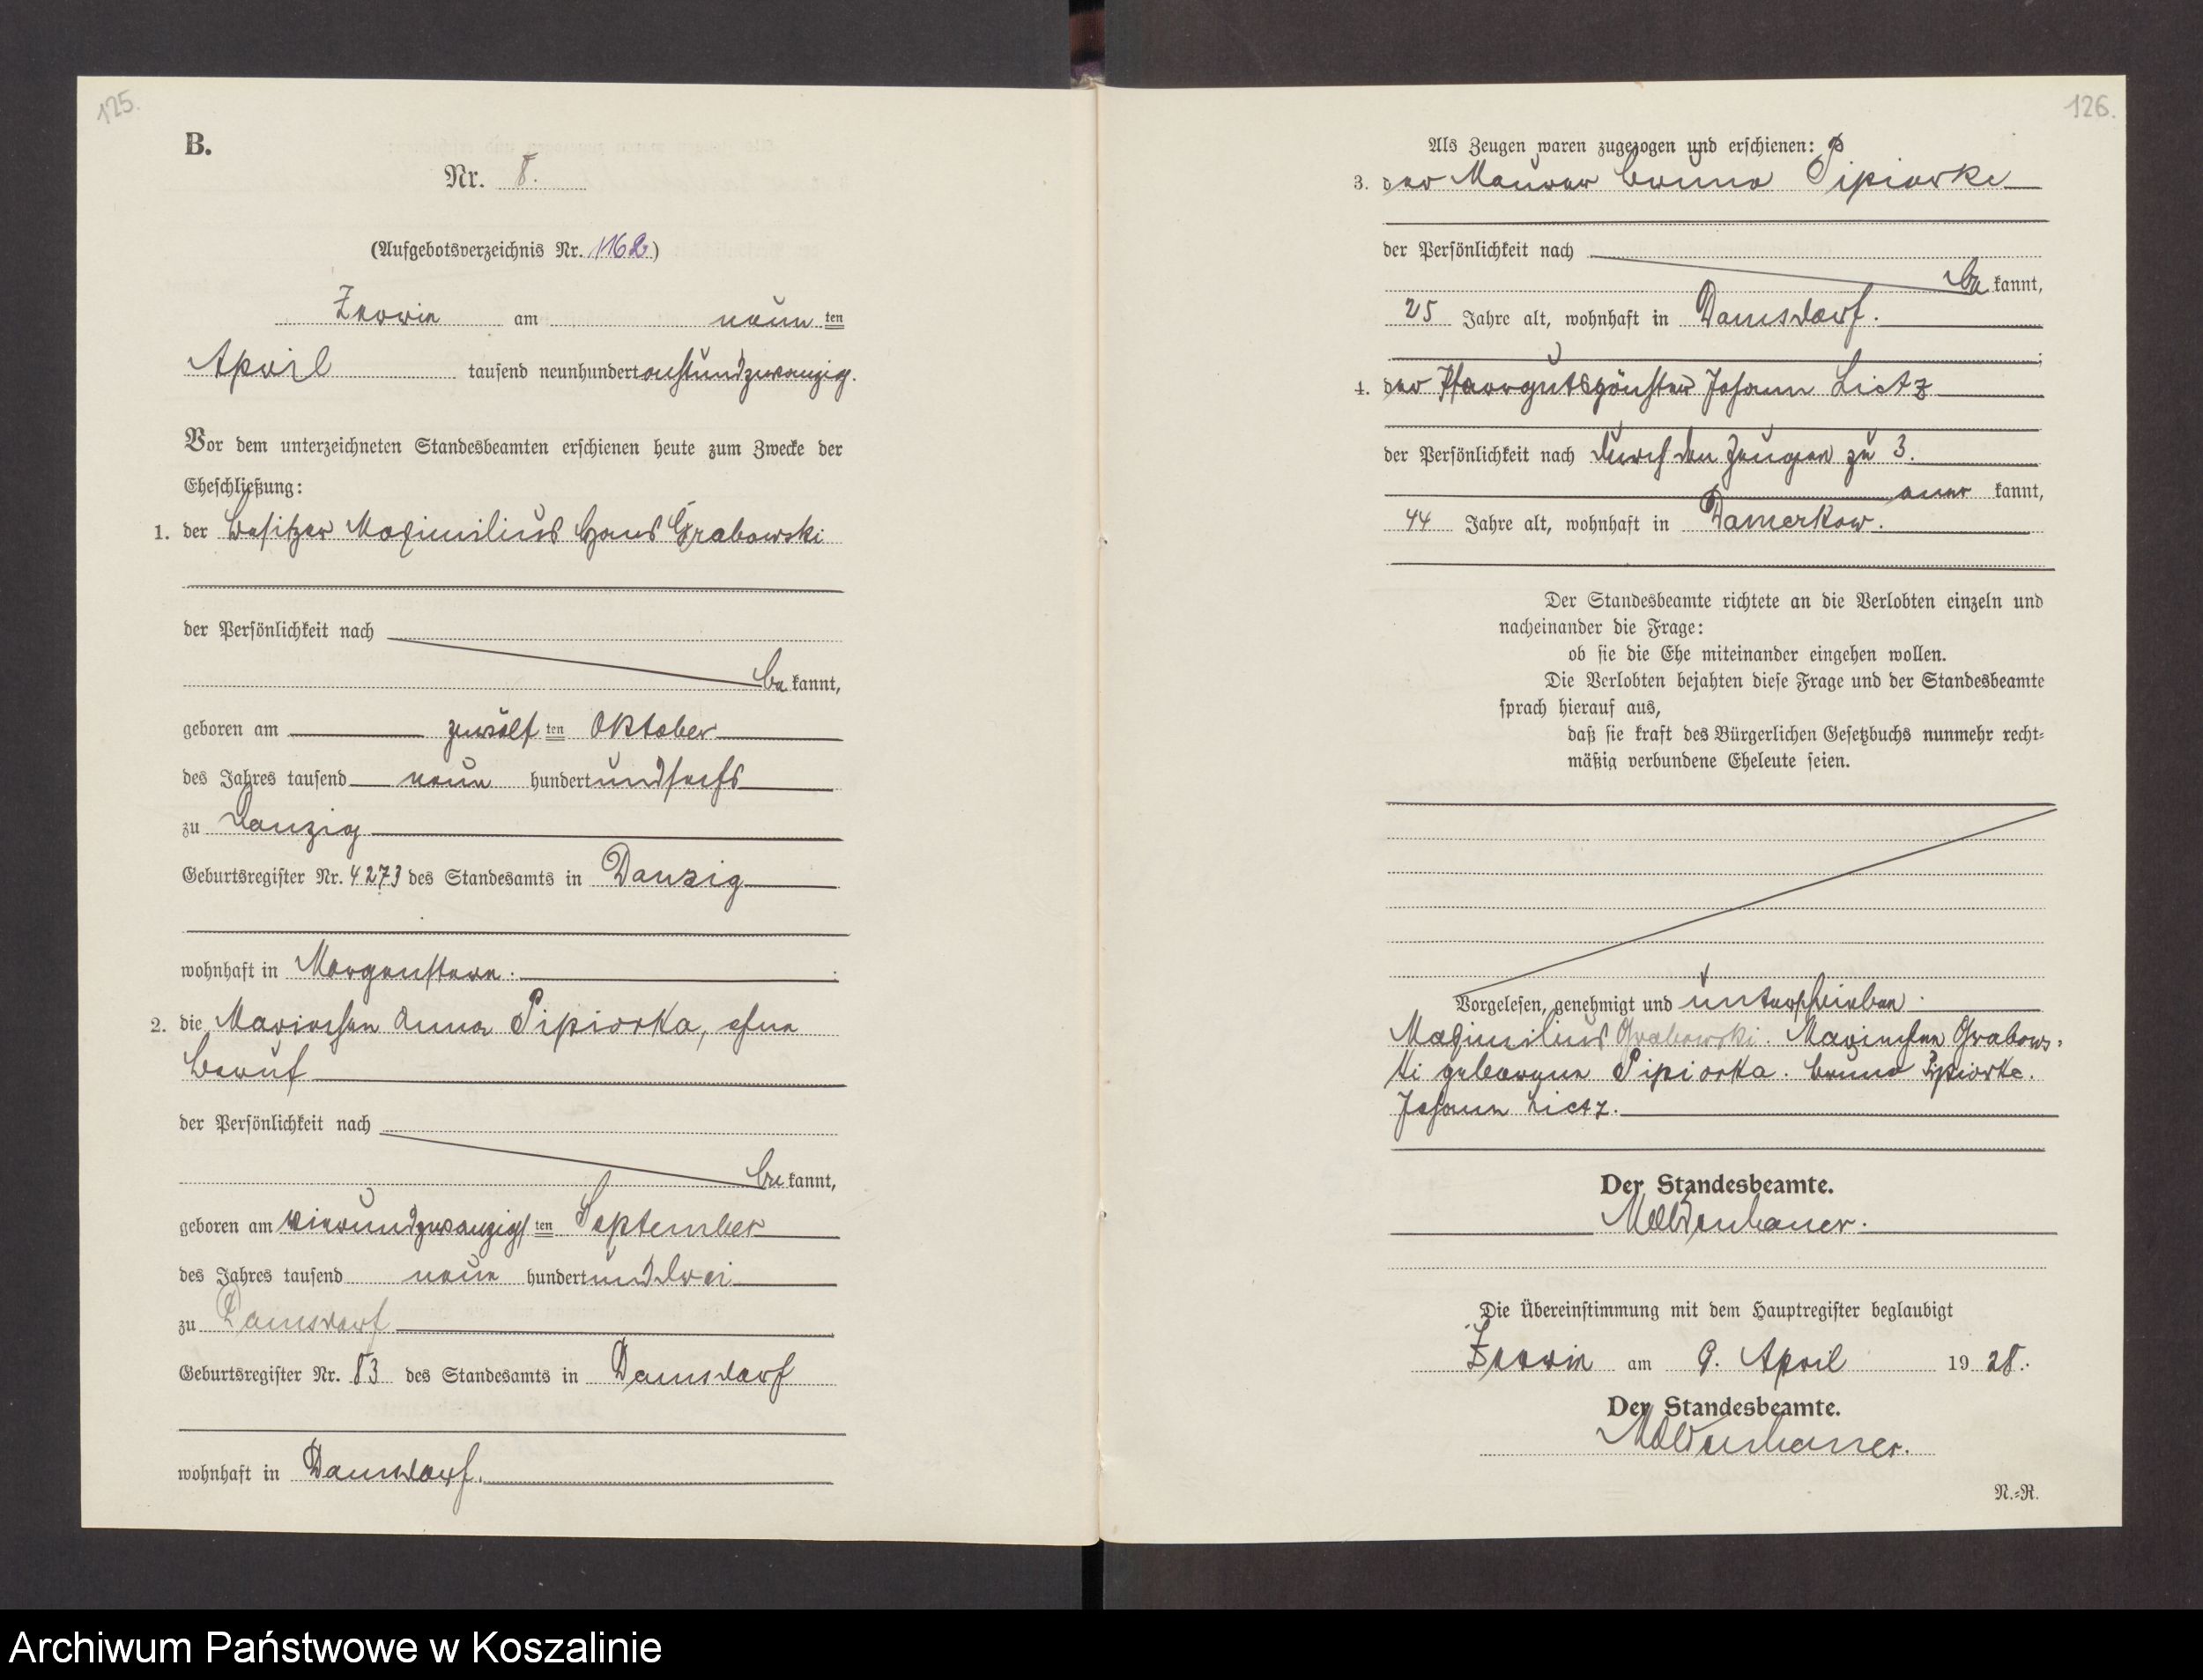 125.
B.
Nr. 8.
(Aufgebotsverzeichnis Nr. 1162)
Zerrin am neun ten
April tausend neunhundert achtundzwanzig.
Vor dem unterzeichneten Standesbeamten erschienen heute zum Zwecke der
Eheschließung:
1. der Besitzer Maximilius Hans Grabowski
der Persönlichkeit nach
be kannt,
geboren am zwölf ten Oktober
des Jahres tausend neun hundert und sechs
zu Danzig
Geburtsregister Nr. 4273 des Standesamts in Danzig
wohnhaft in Morgenstern.
2. die Mariechen Anna Pipiorka, ohne
Beruf
der Persönlichkeit nach
be kannt,
geboren am vierundzwanzigs ten September
des Jahres tausend neun hundert und drei
zu Damsdorf
Geburtsregister Nr. 83 des Standesamts in Damsdorf
wohnhaft in Damsdorf.
126.
Als Zeugen waren zugezogen und erschienen:
3. der Maurer Bruno Pipiorke
der Persönlichkeit nach
be kannt,
25 Jahre alt, wohnhaft in Damsdorf.
4. der Johann Lietz
der Persönlichkeit nach durch den Zeugen zu 3.
aner kannt,
44 Jahre alt, wohnhaft in Damerkow.
Der Standesbeamte richtete an die Verlobten einzeln und
nacheinander die Frage:
ob sie die Ehe miteinander eingehen wollen.
Die Verlobten bejahten diese Frage und der Standesbeamte
sprach hierauf aus,
daß sie kraft des Bürgerlichen Gesetzbuchs nunmehr recht-
mäßig verbundene Eheleute seien.
Vorgelesen, genehmigt und unterschrieben.
Maximilius Grabowski. Mariechen Grabows-
ki geborene Pipiorka. Bruno Pipiorke.
Johann Lietz.
Der Standesbeamte.
Moldenhauer.
Die Übereinstimmung mit dem Hauptregister beglaubigt
Zerrin am 9. April 19 28.
Der Standesbeamte.
Moldenhauer.
N.-R.
Archiwum Państwowe w Koszalinie